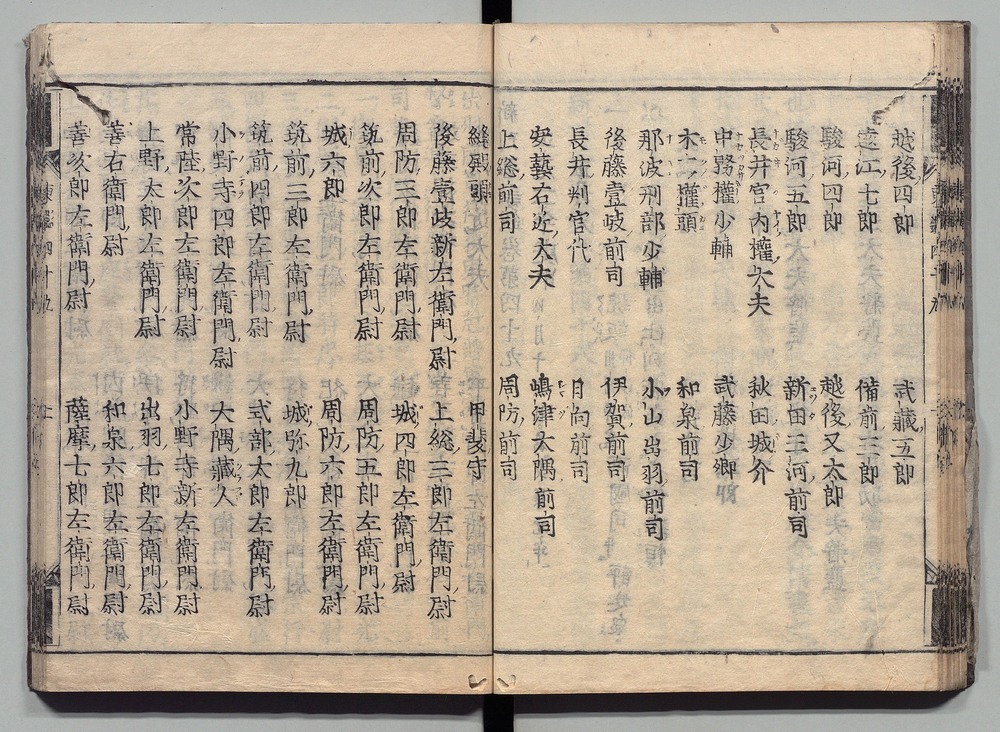 越後四郎　武藏五郎
遠江七郎　備前三郎
駿河四郎　越後又太郎
駿河五郎　新田三河前司
長井宮内權大夫　秋田城介
中務權少輔　武藤少卿
木工權頭　和泉前司
那波刑部少輔　小山出羽前司
後藤壹岐前司　伊賀前司
長井判官代　日向前司
安藝右近大夫　嶋津大隅前司
上総前司　周防前司
縫殿頭　甲斐守
後藤壹岐新左衛門尉　上総三郎左衛門尉
周防三郎左衛門尉　城四郎左衛門尉
筑前次郎左衛門尉　周防五郎左衛門尉
城六郎　周防六郎左衛門尉
筑前三郎左衛門尉　城弥九郎
筑前四郎左衛門尉　式部太郎左衛門尉
小野寺四郎左衛門尉　大隅藏人
常陸次郎左衛門尉　小野寺新左衛門尉
上野太郎左衛門尉　出羽七郎左衛門尉
善右衛門尉　和泉六郎左衛門尉
善次郎左衛門尉　薩摩七郎左衛門尉